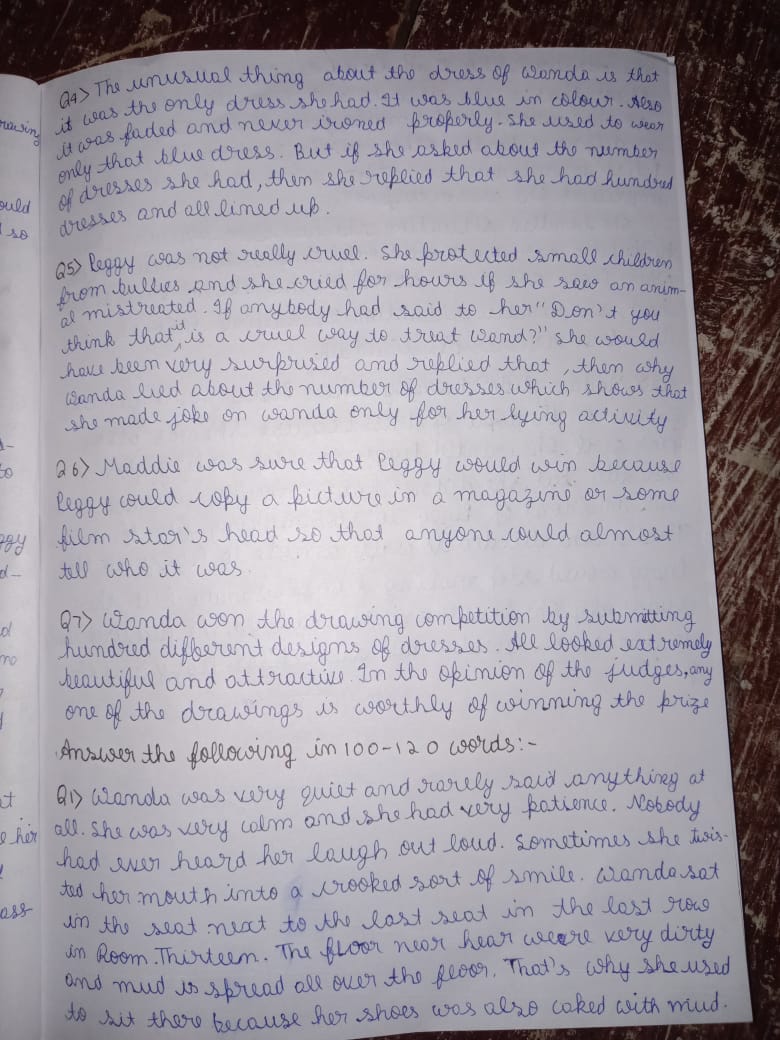 rawing
ould
so
to
ggy
d-
d
mo
at
e her
ass
Q4> The unusual thing about the dress of Wanda is that
it was the only dress she had. It was blue in colour. Also
it was faded and never ironed properly. She used to wear
only that blue dress. But if she asked about the number
of dresses she had, then she replied that she had hundred
dresses and all lined up.
Q5> Peggy was not really cruel. She protected small children
from bullies and she cried for hours if she saw an anim-
al mistreated. If anybody had said to her "Don't you
think that it is a cruel way to treat Wand?" she would
have been very surprised and replied that, then why
Wanda lied about the number of dresses which shows that
she made joke on wanda only for her lying activity
Q6> Maddie was sure that Peggy would win because
Peggy could copy a picture in a magazine or some
film star's head so that anyone could almost
tell who it was.
Q7> Wanda won the drawing competition by submitting
hundred different designs of dresses. All looked extremely
beautiful and attractive. In the opinion of the judges, any
one of the drawings is worthly of winning the prize
Answer the following in 100-120 words:-
Q1> Wanda was very quiet and rarely said anything at
all. She was very calm and she had very patience. Nobody
had ever heard her laugh out loud. Sometimes she twis-
ted her mouth into a crooked sort of smile. Wanda sat
in the seat next to the last seat in the last row
in Room Thirteen. The floor near hear were very dirty
and mud is spread all over the floor. That's why she used
to sit there because her shoes was also caked with mud.